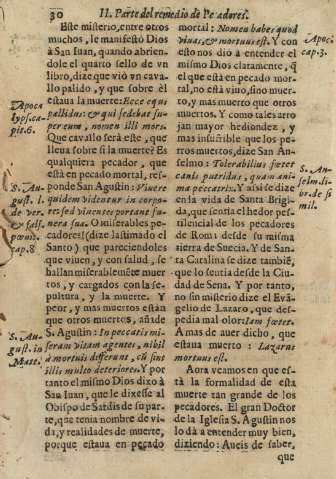 30 II. Parte del remedio de Pecadores.
Este misterio, entre otros
muchos, le manifestò Dios
à San Iuan, quando abrien-
dole el quarto sello de vn
libro, dize que viò vn cava-
llo palido, y que sobre èl
estava la muerte: Ecce equus
pallidus: & qui sedebat su-
per eum, nomen illi mors.
Que cavallo serà este, que
lleva sobre sì la muerte? Es
qualquiera pecador, que
està en pecado mortal, res-
ponde San Agustin: Vivere
quidem videntur in corpo-
re, sed viventes portant fu-
nera sua. O miserables pe-
cadores! (dize lastimado el
Santo) que pareciendoles
que viven, y con salud, se
hallan miserablemẽte muer
tos, y cargados con la se-
pultura, y la muerte. Y
peor, y mas muertos están
que otros muertos, añade
S. Agustin: In peccatis mi-
seram vitam agentes, nihil
à mortuis differunt, cũ sint
illis multo deteriores. Y por
tanto el mismo Dios dixo à
San Iuan, que le dixesse al
Obispo de Sardis de su par-
te, que tenia nombre de vi-
da, y realidades de muerte,
porque estava en pecado
Apoca
lyps. ca-
pit. 6.
S. Au-
gust. l.
de ver.
& fals.
pœnit.
cap. 8
S. Au-
gust. in
Matt.
mortal: Nomen habes quod
vivas, & mortuus est. Y con
esto nos diò à entender el
mismo Dios claramente, q̃
el que està en pecado mor-
tal, no està vivo, sino muer-
to, y mas muerto que otros
muertos. Y como tales arro
jan mayor hediondez, y
mas insufrible que los pe-
rros muertos, dize San An-
selmo: Tolerabilius fœtet
canis putridus, quam ani-
ma peccatrix. Y assi se dize
en la vida de Santa Brigi-
da, que sentia el hedor pes-
tilencial de los pecadores
de Roma desde su misma
tierra de Suecia. Y de San-
ta Catalina se dize tambiẽ,
que lo sentia desde la Ciu-
dad de Sena. Y por tanto,
no sin misterio dize el Evã-
gelio de Lazaro, que des-
pedia mal olor: Iam fœtet.
A mas de aver dicho, que
estava muerto: Lazarus
mortuus est.
Aora veamos en que es-
tà la formalidad de esta
muerte tan grande de los
pecadores. El gran Doctor
de la Iglesia S. Agustin nos
lo dà à entender muy bien,
diziendo: Aveis de saber,
que
Apoc.
cap. 3.
S. An-
selm. li-
br. de si
mil.